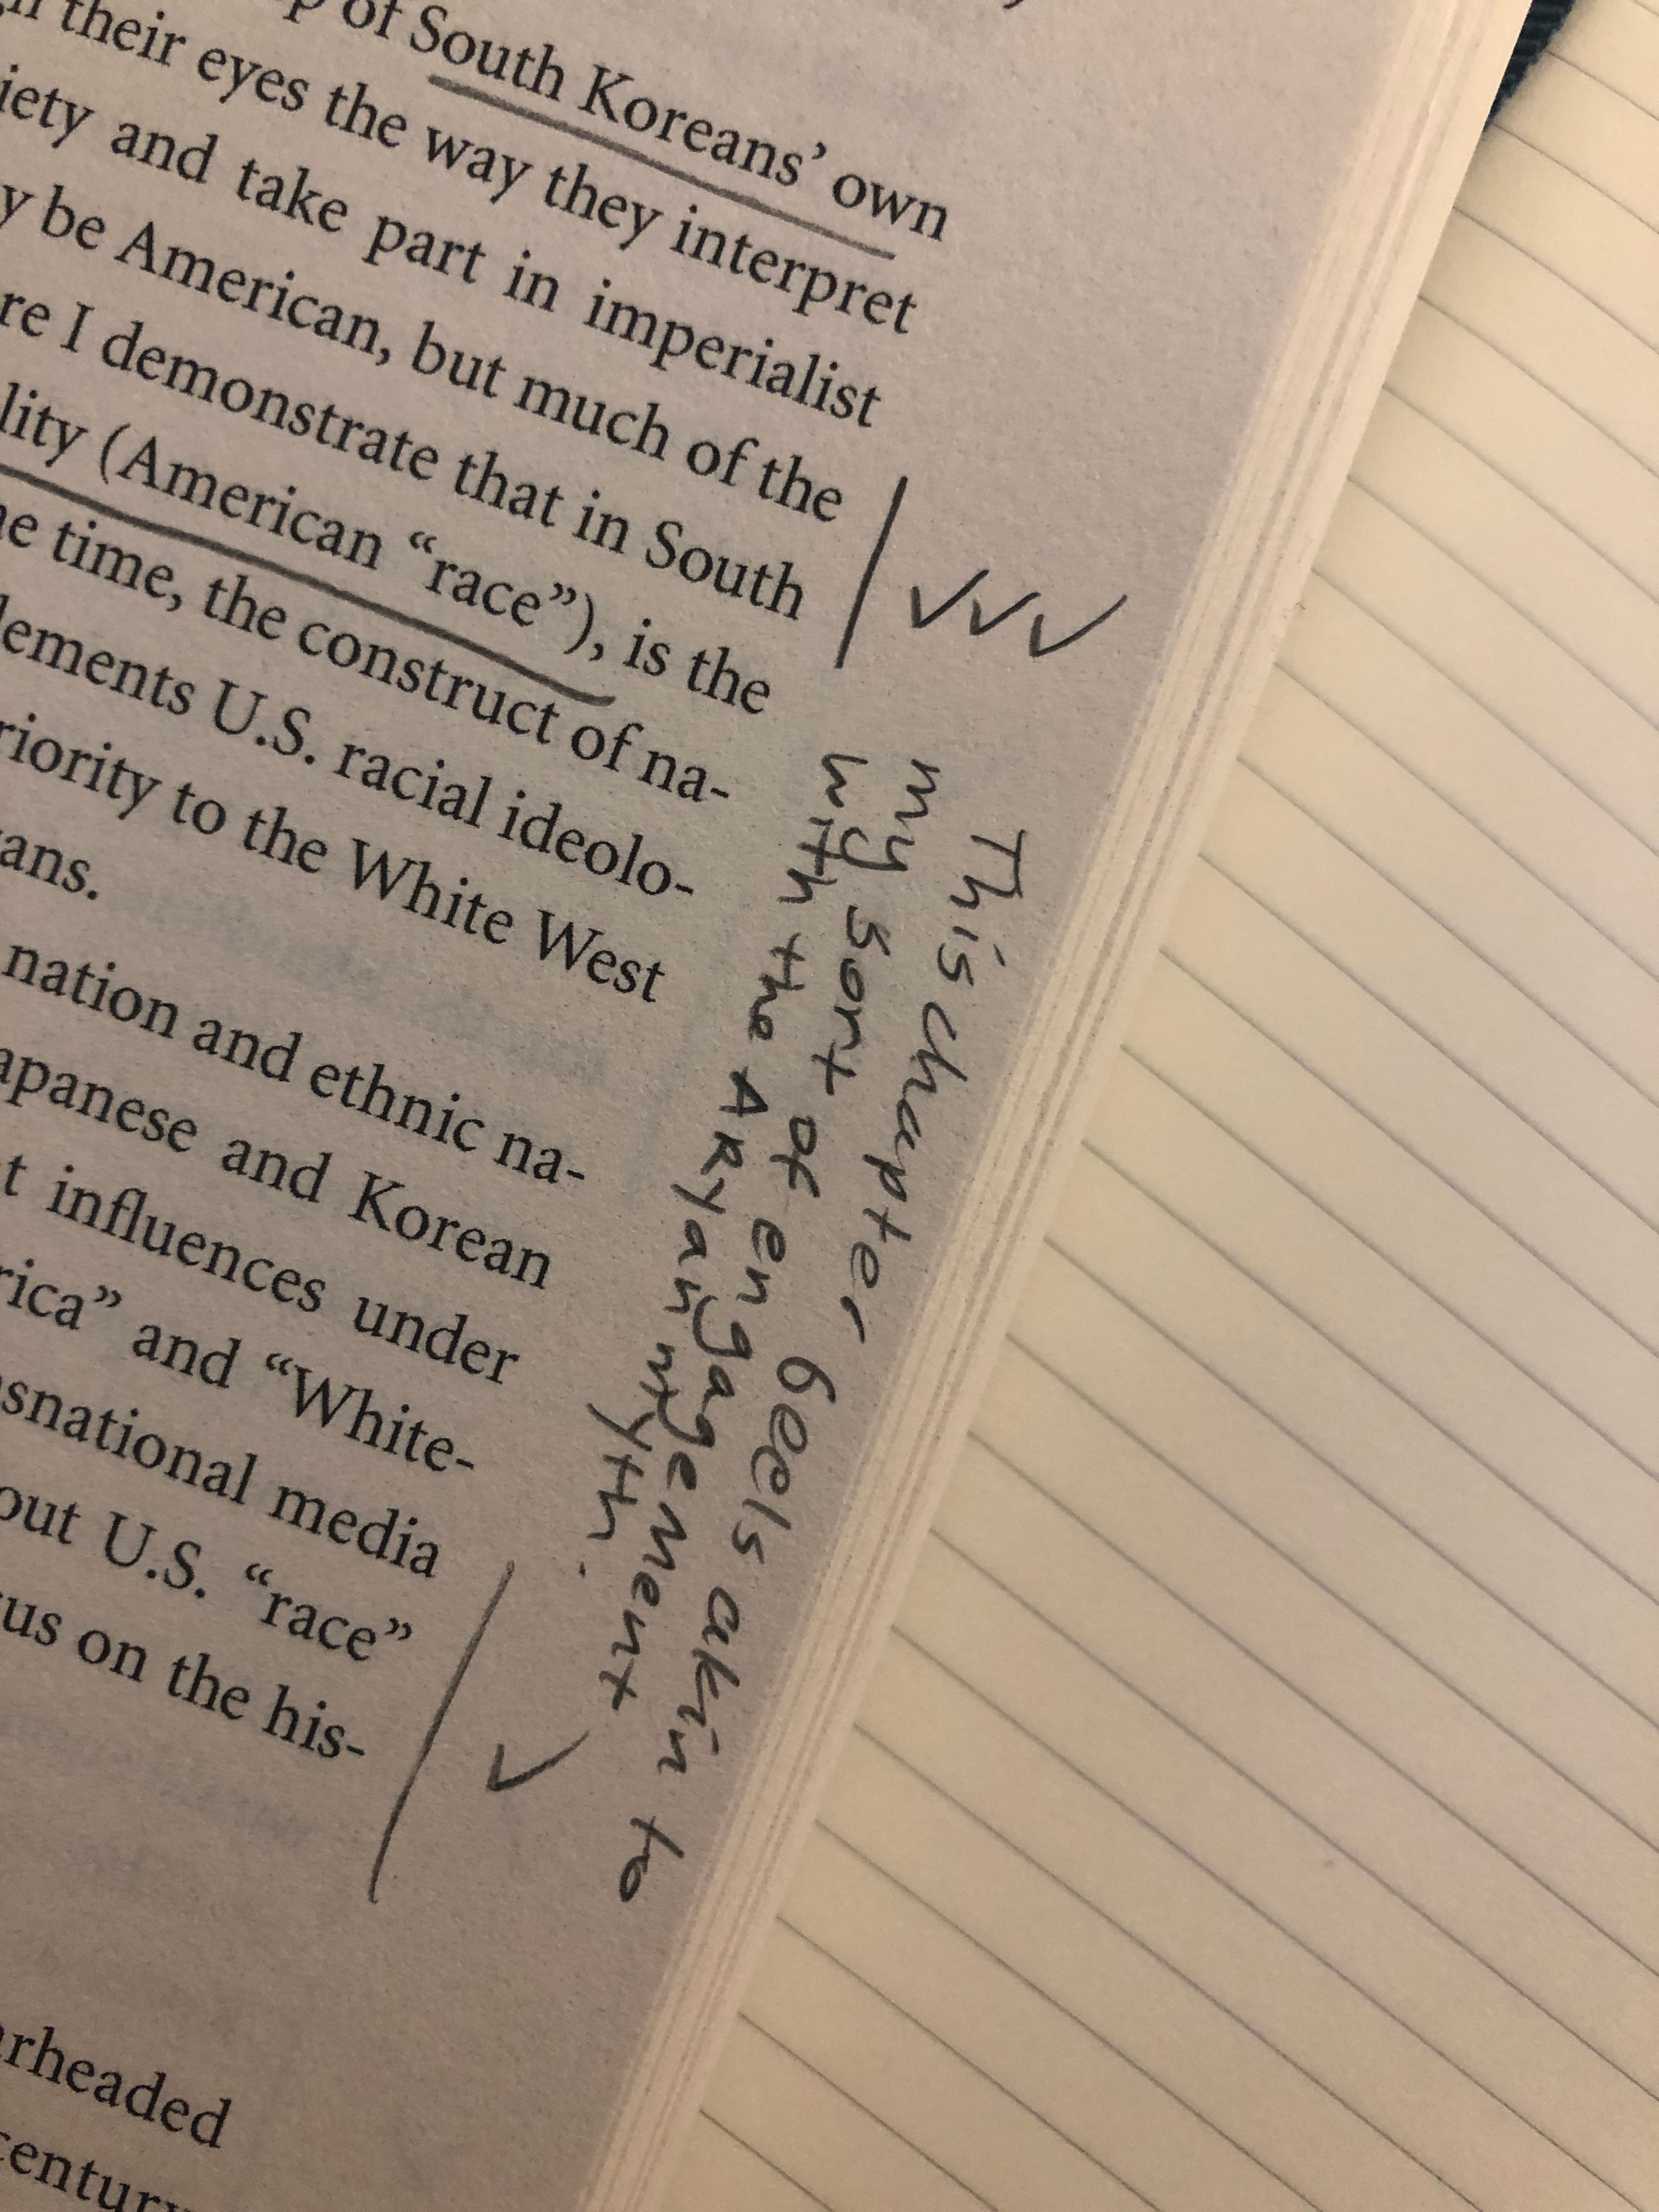 of South Koreans' own
their eyes the way they interpret
iety and take part in imperialist
y be American, but much of the
re I demonstrate that in South
lity (American "race"), is the
e time, the construct of na-
lements U.S. racial ideolo-
riority to the White West
ans.
nation and ethnic na-
apanese and Korean
t influences under
rica" and "White-
snational media
out U.S. "race"
us on the his-
arheaded
century
This chapter feels akin to
my sort of engagement
with the ARyan myth.